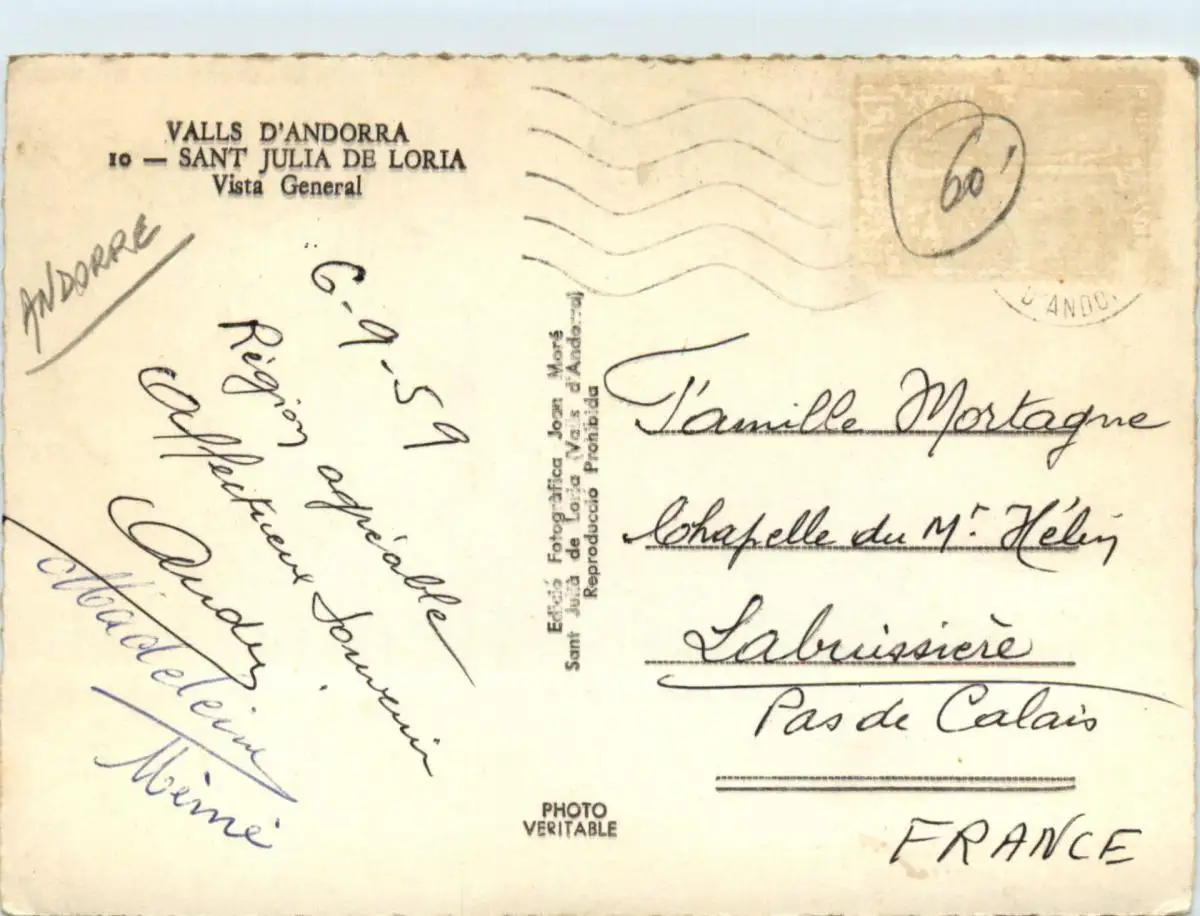 VALLS D'ANDORRA
10 — SANT JULIA DE LORIA
Vista General
ANDORRE
6-9-59
Région agréable
Affectueux Souvenir
Madeleine
Mémé
Edició Fotográfica Joan Moré
Sant Juliá de Loria (Valls d'Andorra)
Reproduccio Prohibida
PHOTO
VERITABLE
60'
D'ANDO
Famille Mortagne
Chapelle du Mr. Hélin
Labruissière
Pas de Calais
FRANCE